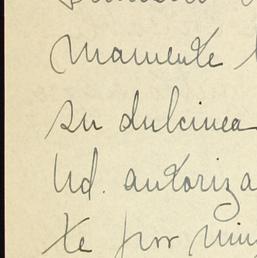 mamente
su dulcinea
Ud. autoriza
te por